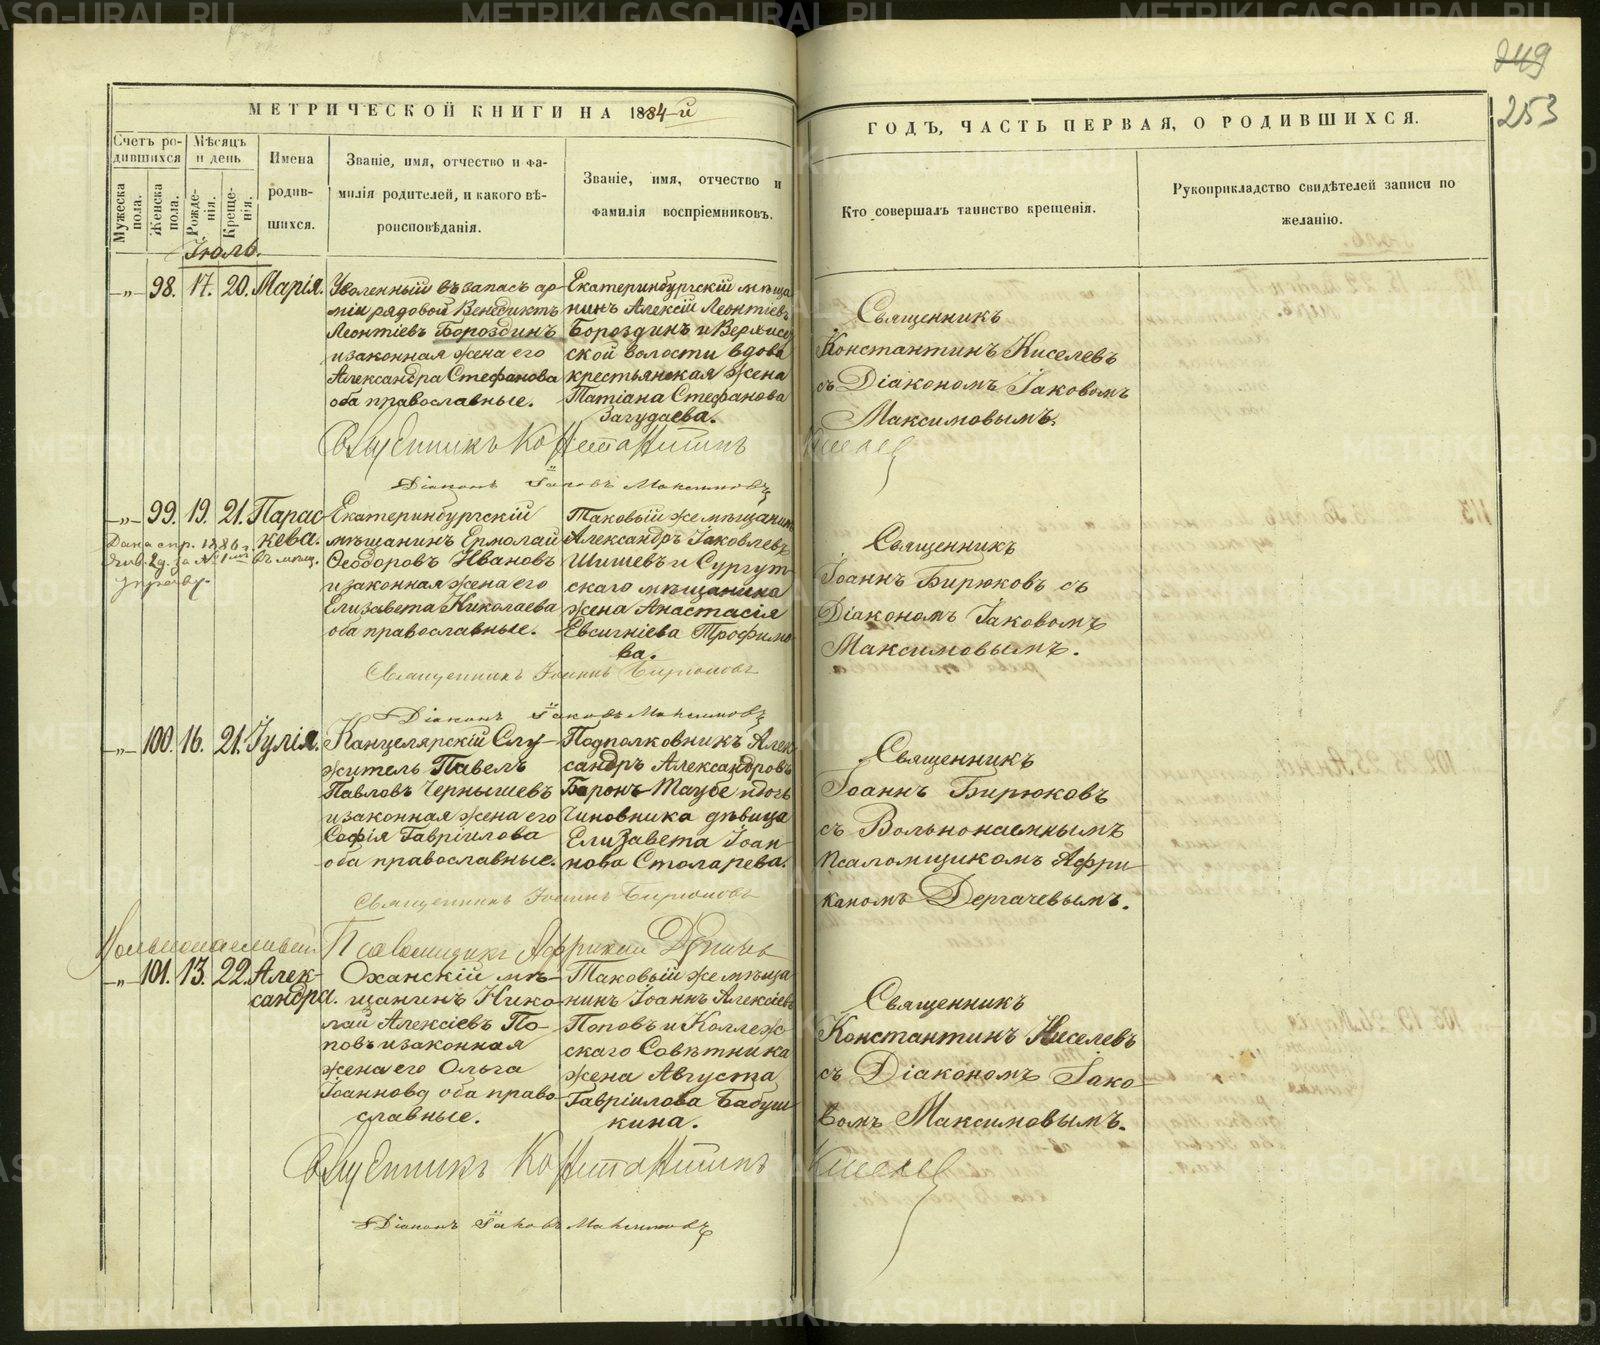 249
253
МЕТРИЧЕСКОЙ КНИГИ НА 1884-й
ГОДЪ, ЧАСТЬ ПЕРВАЯ, О РОДИВШИХСЯ.
Счетъ родившихся
Мужеска пола.
Женска пола.
Мѣсяцъ и день
Рожденія.
Крещенія.
Имена родившихся.
Званіе, имя, отчество и фамилія родителей, и какого вѣроисповѣданія.
Званіе, имя, отчество и фамилія воспріемниковъ.
Кто совершалъ таинство крещенія.
Рукоприкладство свидѣтелей записи по желанію.
Іюль.
-„- 98. 17. 20. Марія.
Уволенный въ запасъ ар-
міи рядовой Венедиктъ
Леонтіевъ Бороздинъ
и законная жена его
Александра Стефанова
оба православные.
Екатеринбургскій мѣща
нинъ Алексій Леонтіевъ
Бороздинъ и Верхисе
ской волости вдова
крестьянская жена
Татіана Стефанова
Загудаева.
Священникъ
Константинъ Киселевъ
съ Діакономъ Іаковомъ
Максимовымъ.
Священникъ Константинъ Киселев
Діаконъ Іаковъ Максимовъ
-„- 99. 19. 21. Парас-
кева.
Дана спр. 1886 г.
въ мѣщ.
управу.
Екатеринбургскій
мѣщанинъ Ермолай
Ѳеодоровъ Ивановъ
и законная жена его
Елизавета Николаева
оба православные.
Таковый же мѣщанинъ
Александръ Іаковлевъ
Шишевъ и Сургут-
скаго мѣщанина
жена Анастасія
Евсигніева Трофимо
ва.
Священникъ
Іоаннъ Бирюковъ съ
Діакономъ Іаковомъ
Максимовымъ.
Священникъ Іоаннъ Бирюковъ
Діаконъ Іаковъ Максимовъ
-„- 100. 16. 21. Іулія.
Канцелярскій Слу-
житель Павелъ
Павловъ Чернышевъ
и законная жена его
Софія Гавріилова
оба православные.
Подполковникъ Алек
сандръ Александровъ
Баронъ Таубе и дочь
Чиновника дѣвица
Елизавета Іоан
нова Столарева.
Священникъ
Іоаннъ Бирюковъ
съ Вольнонаемнымъ
псаломщикомъ Афри
каномъ Дергачевымъ.
Священникъ Іоаннъ Бирюковъ
Вольнонаемный Псаломщикъ Африкан
-„- 101. 13. 22. Алек-
сандра.
Оханскій мѣ-
щанинъ Нико-
лай Алексіевъ По-
повъ и законная
жена его Ольга
Іоаннова оба право-
славные.
Таковый же мѣща
нинъ Іоаннъ Алексіевъ
Поповъ и Коллеж
скаго Совѣтника
жена Августа
Гавріилова Бабуш
кина.
Священникъ
Константинъ Киселевъ
съ Діакономъ Іако-
вомъ Максимовымъ.
Священникъ Константинъ Киселев
Діаконъ Іаковъ Максимовъ
METRIKI.GASO-URAL.RU